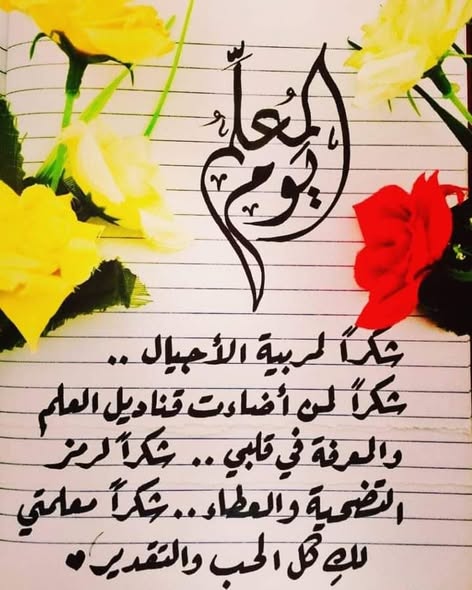 يوم المُعلِّم
شكراً لمربية الأجيال ..
شكراً لمن أضاءت قناديل العلم
والمعرفة في قلبي .. شكراً لرمز
التضحية والعطاء .. شكراً معلمتي
لكِ كل الحب والتقدير ♥